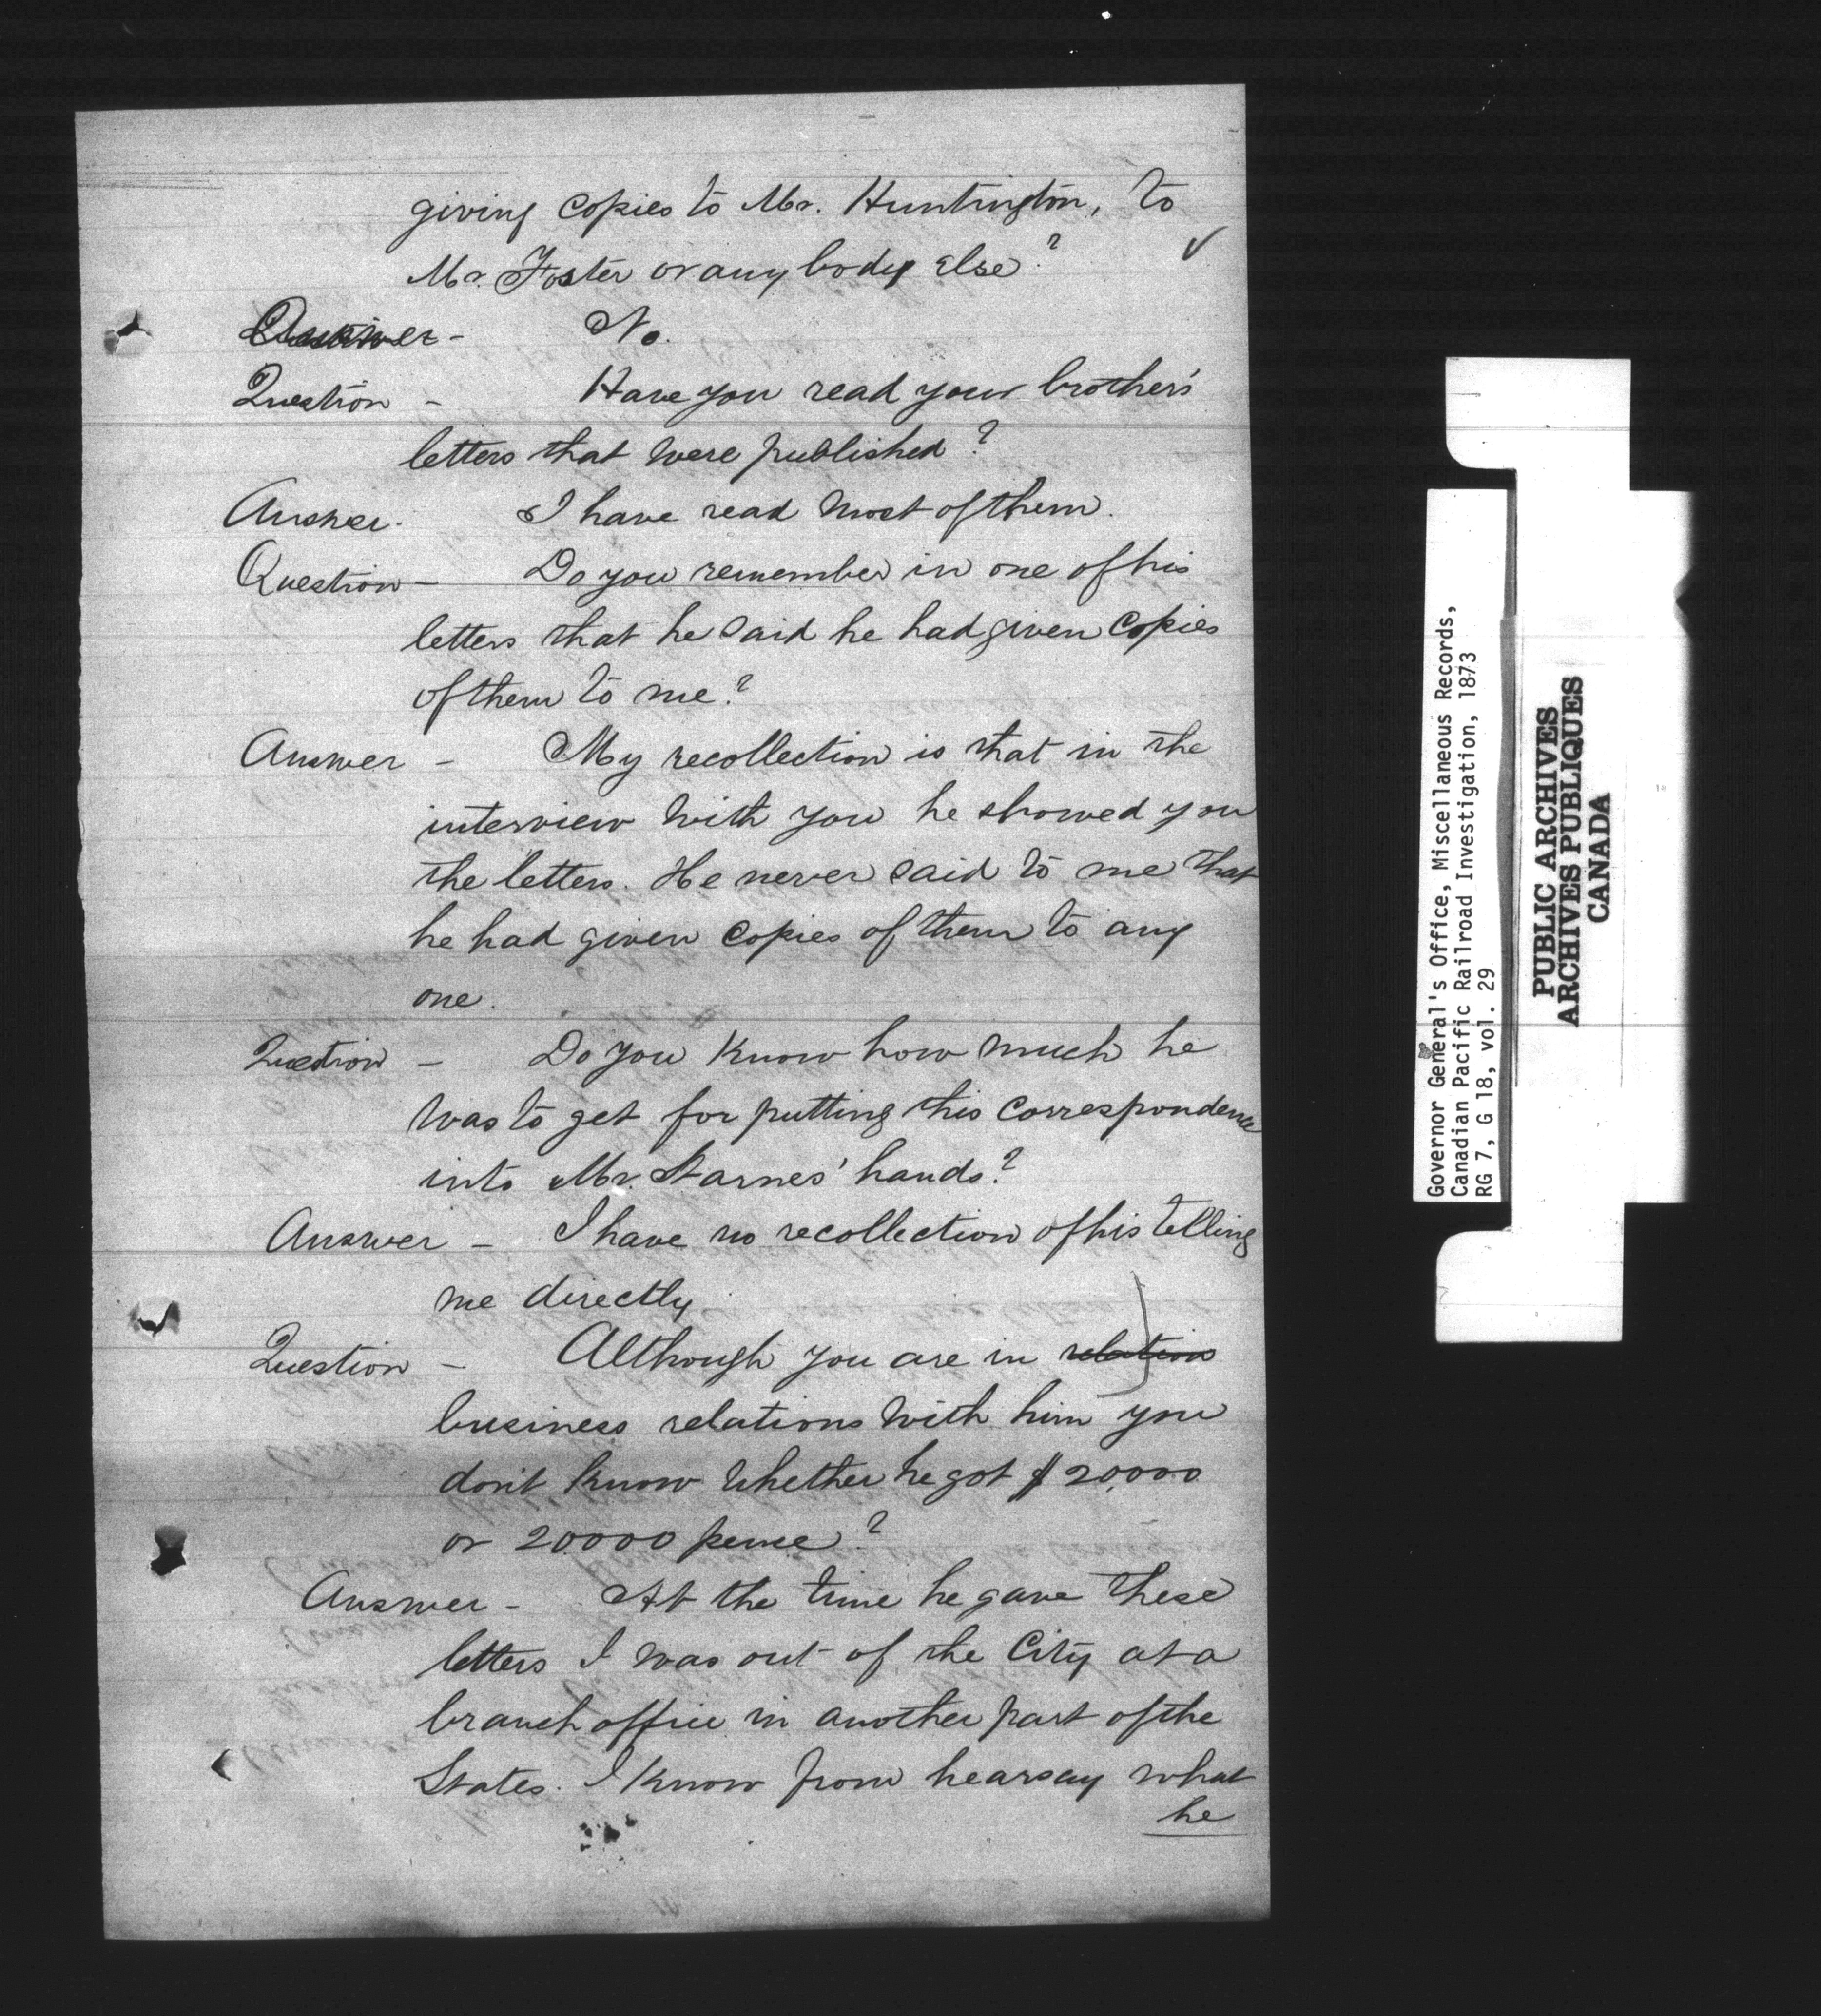 giving copies to Mr. Huntington, to
Mr. Foster or any body else?
Answer - No.
Question - Have you read your brother's
letters that were published?
Answer. I have read most of them.
Question - Do you remember in one of his
letters that he said he had given copies
of them to me?
Answer - My recollection is that in the
interview with you he showed you
the letters. He never said to me that
he had given copies of them to any
one.
Question - Do you know how much he
was to get for putting this correspondence
into Mr. Starnes' hands?
Answer - I have no recollection of his telling
me directly.
Question - Although you are in relation
business relations with him you
don't know whether he got $20,000
or 20000 pence?
Answer - At the time he gave these
letters I was out of the City at a
branch office in another part of the
States. I know from hearsay what
he
Governor General's Office, Miscellaneous Records,
Canadian Pacific Railroad Investigation, 1873
RG 7, G 18, vol. 29
PUBLIC ARCHIVES
ARCHIVES PUBLIQUES
CANADA